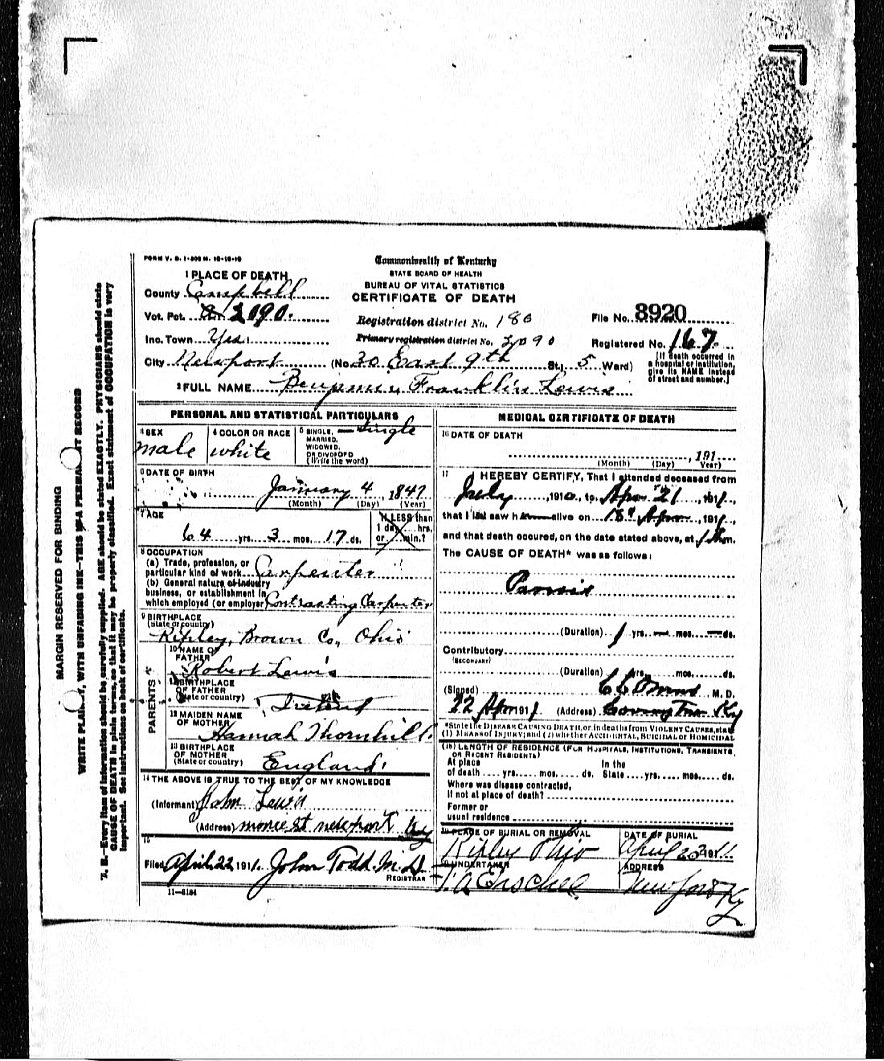 FORM V. S. 1-
Commonwealth of Kentucky
STATE BOARD OF HEALTH
BUREAU OF VITAL STATISTICS
CERTIFICATE OF DEATH
1 PLACE OF DEATH
County Campbell
Vot. Pct. 2090.
Inc. Town Yes
City Newport (No. 30 East 9th St., 5 Ward)
Registration district No. 180
Primary registration district No. 2090
File No. 8920
Registered No. 167
[If death occurred in a hospital or institution, give its NAME instead of street and number.]
2 FULL NAME Benjamin Franklin Lewis
PERSONAL AND STATISTICAL PARTICULARS
3 SEX male
4 COLOR OR RACE white
5 SINGLE, MARRIED, WIDOWED, OR DIVORCED (Write the word) Single
6 DATE OF BIRTH
January 4, 1847
(Month) (Day) (Year)
7 AGE
64 yrs. 3 mos. 17 ds.
If LESS than 1 day hrs. or min.?
8 OCCUPATION
(a) Trade, profession, or particular kind of work Carpenter
(b) General nature of industry business, or establishment in which employed (or employer) Contracting Carpenter
9 BIRTHPLACE
(State or country)
Ripley, Brown Co, Ohio
PARENTS
10 NAME OF FATHER
Robert Lewis
11 BIRTHPLACE OF FATHER
(State or country) Ireland
12 MAIDEN NAME OF MOTHER
Hannah Thornhill
13 BIRTHPLACE OF MOTHER
(State or country) England
14 THE ABOVE IS TRUE TO THE BEST OF MY KNOWLEDGE
(Informant) John Lewis
(Address) newport Ky
15
Filed April 22 1911. John Todd M.D.
REGISTRAR
11-3184
MEDICAL CERTIFICATE OF DEATH
16 DATE OF DEATH
, 191
(Month) (Day) Year)
17 I HEREBY CERTIFY, That I attended deceased from
July , 1910, to Apr 21 , 1911,
that I last saw h alive on 18th Apr , 1911,
and that death occured, on the date stated above, at m.
The CAUSE OF DEATH* was as follows:
(Duration) 1 yrs. mos. ds.
Contributory
(SECONDARY)
(Duration) yrs. mos. ds.
(Signed) M. D.
22 Apr 1911 (Address) Covington Ky
*State the DISEASE CAUSING DEATH, or in deaths from VIOLENT CAUSES, state (1) MEANS OF INJURY; and (2) whether ACCIDENTAL, SUICIDAL OR HOMICIDAL
18 LENGTH OF RESIDENCE (FOR HOSPITALS, INSTITUTIONS, TRANSIENTS, OR RECENT RESIDENTS)
At place of death yrs. mos. ds. In the State yrs. mos. ds.
Where was disease contracted,
if not at place of death?
Former or
usual residence
19 PLACE OF BURIAL OR REMOVAL
Ripley Ohio
DATE OF BURIAL
April 23 1911
20 UNDERTAKER
ADDRESS
Newport Ky
MARGIN RESERVED FOR BINDING
WRITE PLAINLY, WITH UNFADING INK—THIS IS A PERMANENT RECORD
N. B.—Every item of information should be carefully supplied. AGE should be stated EXACTLY. PHYSICIANS should state
CAUSE OF DEATH in plain terms, so that it may be properly classified. Exact statement of OCCUPATION is very
important. See instructions on back of certificate.